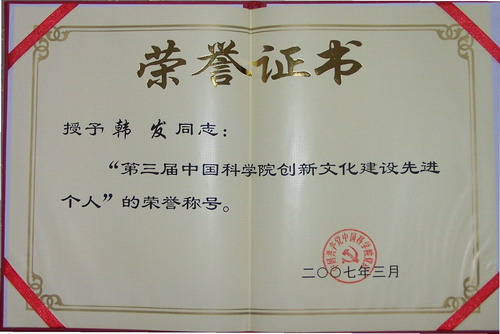 荣誉证书
授予韩发同志：
“第三届中国科学院创新文化建设先进
个人”的荣誉称号。
二〇〇七年三月